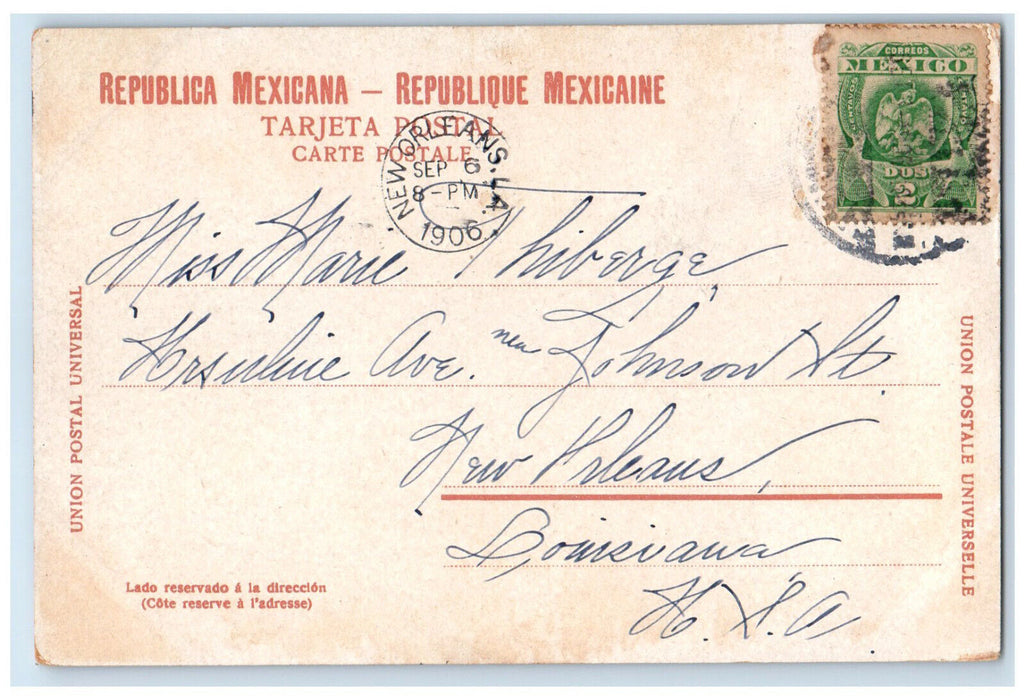 REPUBLICA MEXICANA — REPUBLIQUE MEXICAINE
TARJETA POSTAL
CARTE POSTALE
CORREOS
MEXICO
CENTAVOS
CENTAVOS
DOS
2
NEW ORLEANS, LA.
SEP 6
8-PM
1906
Miss Marie Thiberge,
Ursuline Ave. near Johnson St.
New Orleans,
Louisiana
U.S.A
UNION POSTAL UNIVERSAL
UNION POSTALE UNIVERSELLE
Lado reservado á la dirección
(Côte reserve à l'adresse)